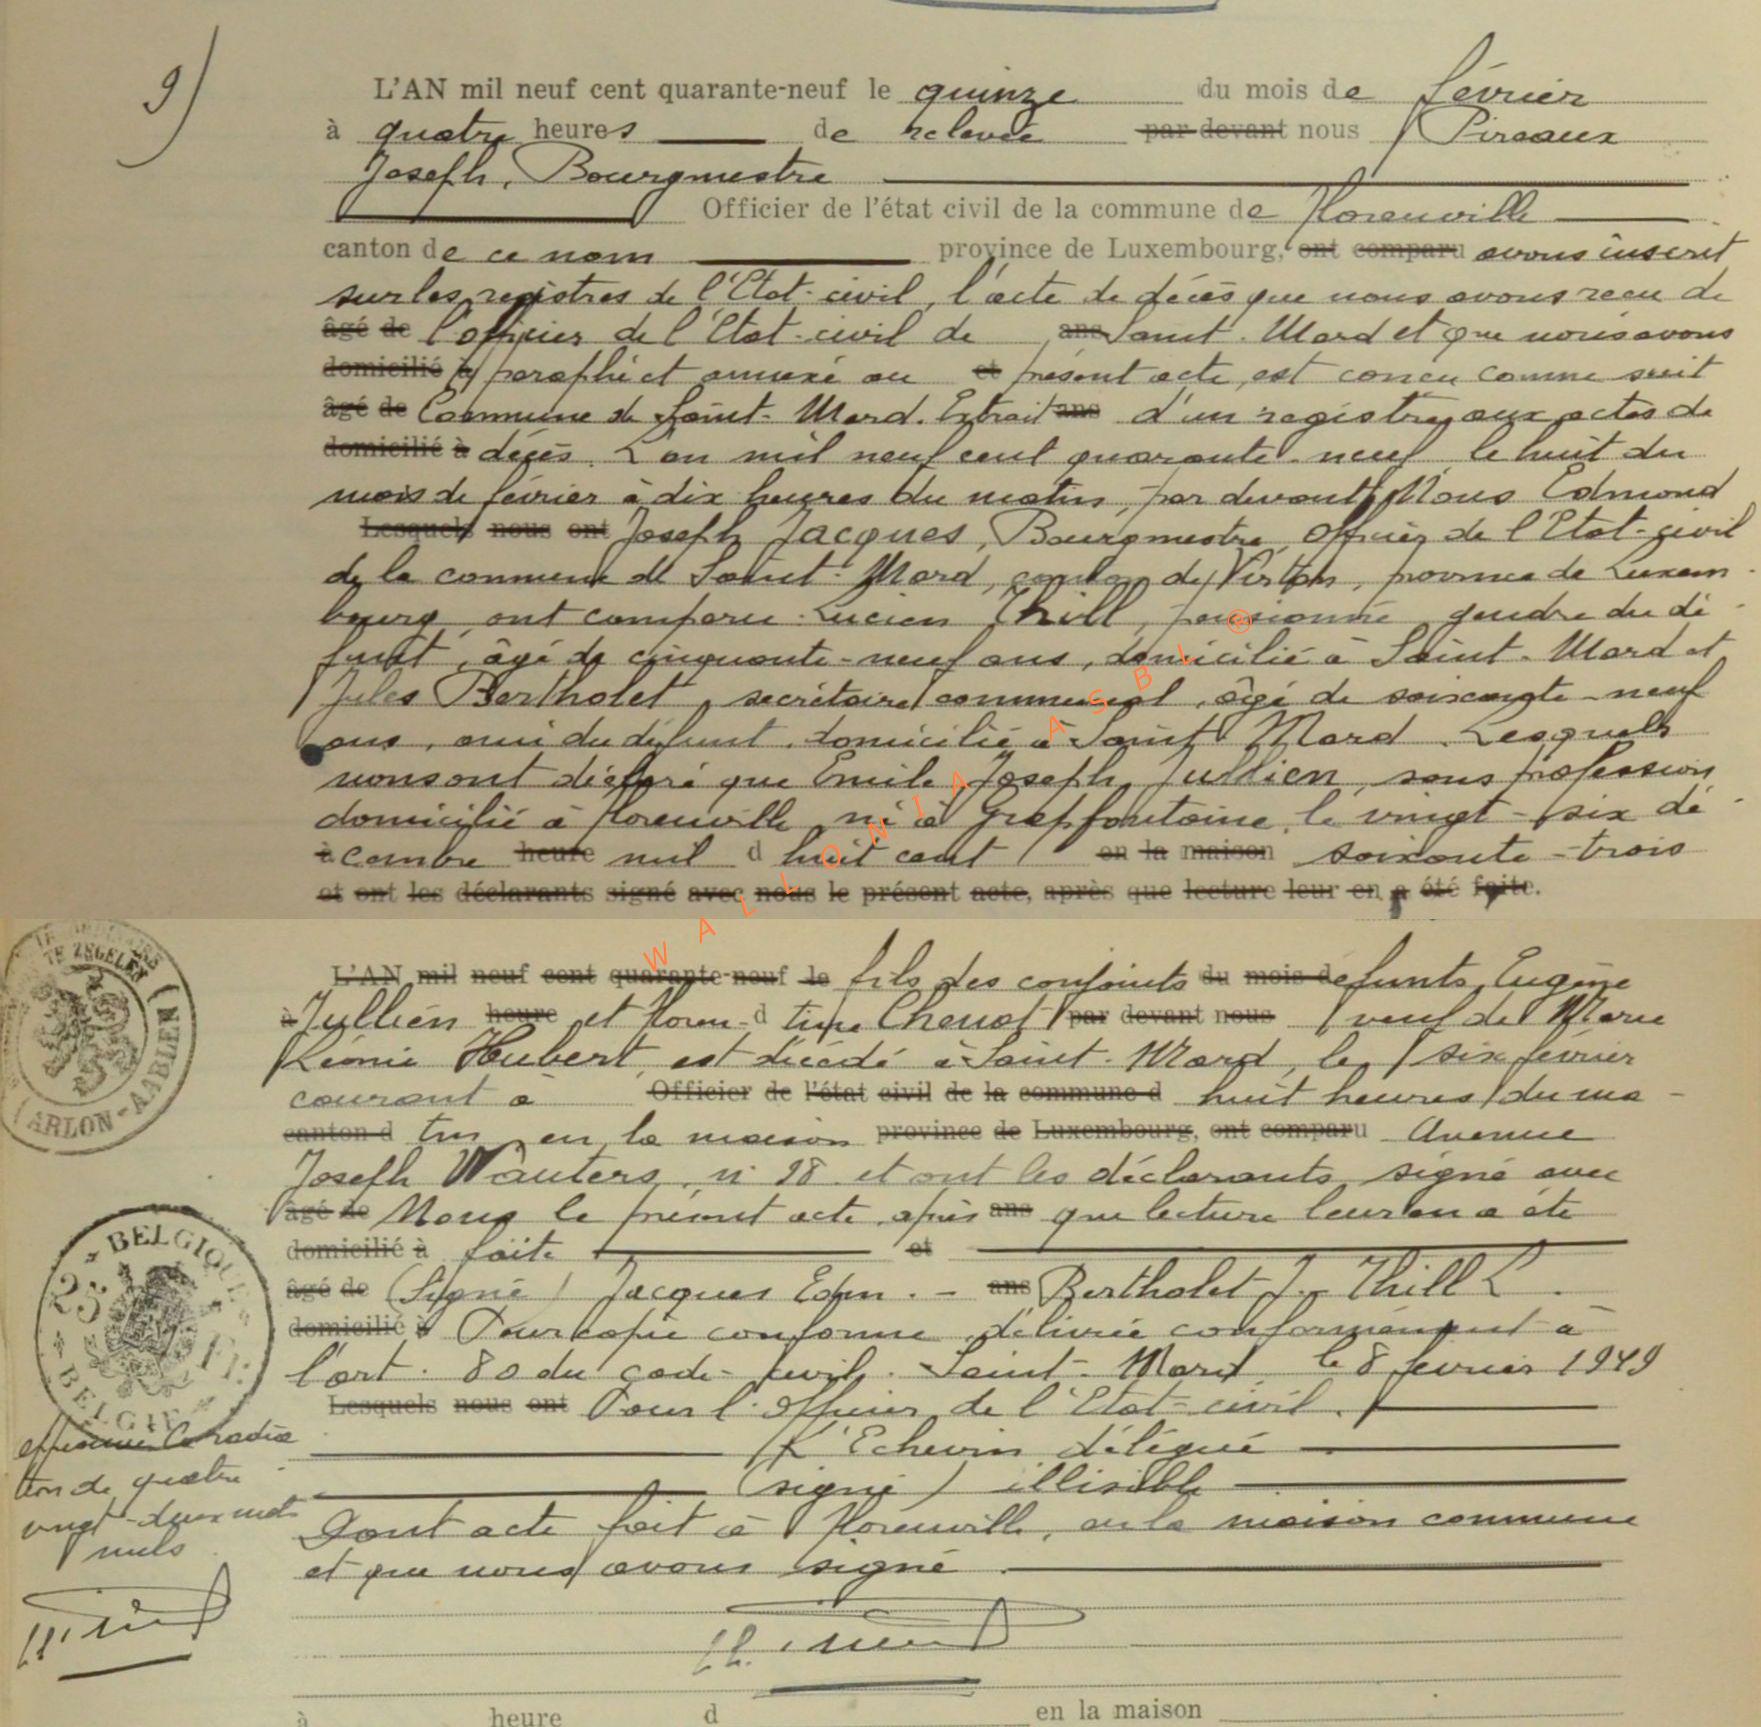 9)
L'AN mil neuf cent quarante-neuf le quinze du mois de février
à quatre heures de relevée par devant nous Pireaux
Joseph, Bourgmestre
Officier de l'état civil de la commune de Florenville
canton de ce nom province de Luxembourg, ont comparu avons inscrit
sur les registres de l'Etat-civil, l'acte de décès que nous avons recu de
âgé de l'officier de l'Etat-civil de ans Saint-Mard et que nous avons
domicilié à paraphé et annexé au et présent acte, est concu comme suit
âgé de Commune de Saint-Mard. Extrait ans d'un registre aux actes de
domicilié à décès. L'an mil neuf cent quarante-neuf, le huit du
mois de février à dix heures du matin, par devant Nous Edmond
Lesquels nous ont Joseph Jacques, Bourgmestre, Officier de l'Etat-civil
de la commune de Saint-Mard, canton de Virton, province de Luxem-
bourg, ont comparu Lucien Thill, pensionné, gendre du dé-
funt, âgé de cinquante-neuf ans, domicilié à Saint-Mard et
Jules Bertholet, secrétaire communal, âgé de soixante-neuf
ans, ami du défunt, domicilié à Saint Mard. Lesquels
nous ont déclaré que Emile Joseph Jullien, sans profession
domicilié à Florenville, né à Grapfontaine, le vingt-six dé-
à cembre heure mil d huit cent en la maison soixante-trois
et ont les déclarants signé avec nous le présent acte, après que lecture leur en a été faite.
TE ZEGELEN
ARLON-AABLEN
L'AN mil neuf cent quarante-neuf le fils des conjoints du mois defunts, Eugène
à Jullien heure et Floren- d tine Chenot par devant nous veuf de Marie
Léonie Hubert, est décédé à Saint-Mard, le six février
courant à Officier de l'état civil de la commune d huit heures du ma-
canton d tin, en la maison province de Luxembourg, ont comparu Avenue
Joseph Wauters, n° 28 et ont les déclarants signé avec
âgé de Nous le présent acte, après ans que lecture leur en a été
domicilié à faite et
âgé de (Signé) Jacques Edm. - ans Bertholet J. - Thill L.
domicilié à Pour copie conforme délivrée conformément à
l'art. 80 du code-civil. Saint-Mard, le 8 février 1949
Lesquels nous ont Pour l'Officier de l'Etat-civil.
L'Echevin délégué
(signé) illisible
Dont acte fait à Florenville, en la maison commune
et que nous avons signé
BELGIQUE
25 Fr.
BELGIE
radia
tion de quatre
vingt-deux mots
nuls
à heure d en la maison
WALLONIA ASBL ®